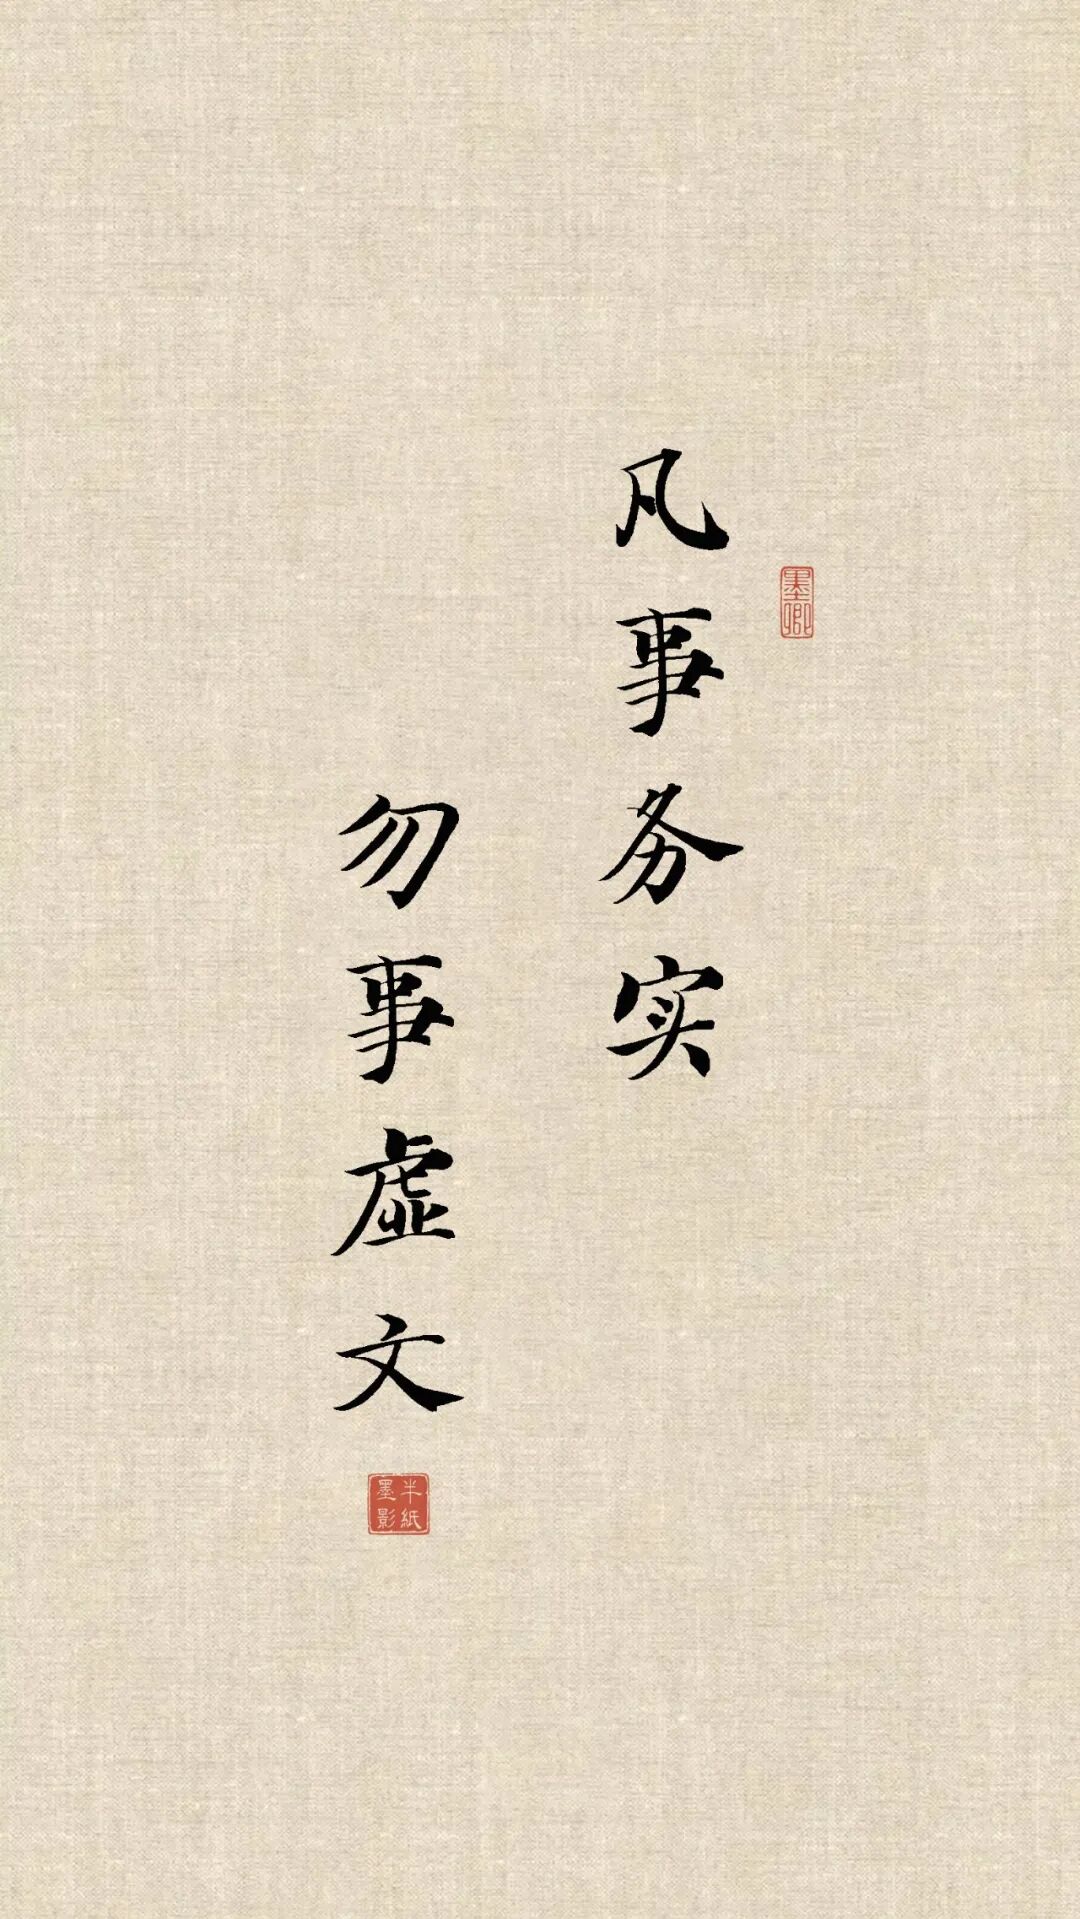 凡事务实
墨卿
勿事虚文
半紙
墨影